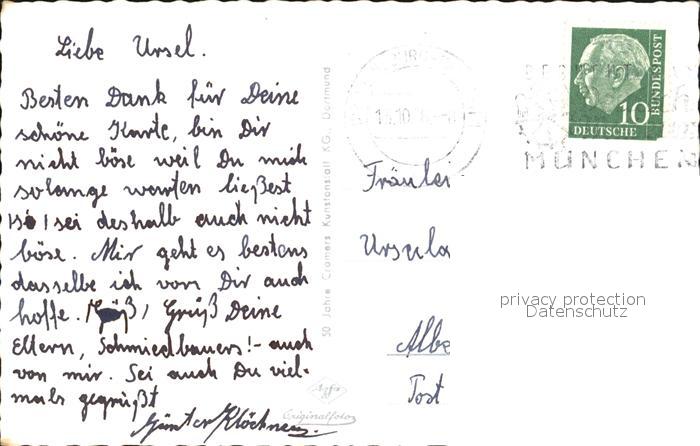 Liebe Ursel.
Besten Dank für Deine
schöne Karte, bin Dir
nicht böse weil Du mich
solange warten ließest
sei deshalb auch nicht
böse. Mir geht es bestens
dasselbe ich von Dir auch
hoffe. Grüß Deine
Eltern, Schmiedbauers!- auch
von mir. Sei auch Du viel-
mals gegrüßt
Günter Klöckner.
50 Jahre Cramers Kunstanstalt KG., Dortmund
Agfa
Originalfoto
10
DEUTSCHE
BUNDESPOST
MÜNCHEN
Fräulei
Ursula
Albe
Post
privacy protection
Datenschutz